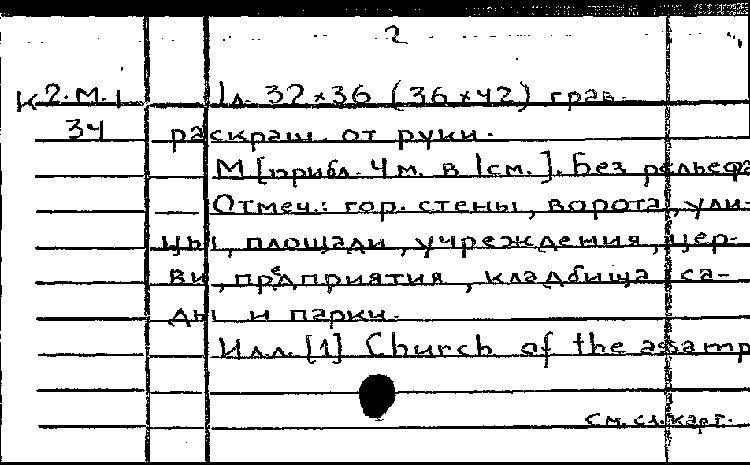 2
К 2.М.1 1 л. 32×36 (36×42) грав.
34 раскраш. от руки.
М [прибл. 4м. в 1см.]. Без рельефа
Отмеч.: гор. стены, ворота, ули-
цы, площади, учреждения, цер-
ви, предприятия, кладбища, са-
ды и парки.
Илл. [1] Church of the assamp
См. сл. карт.